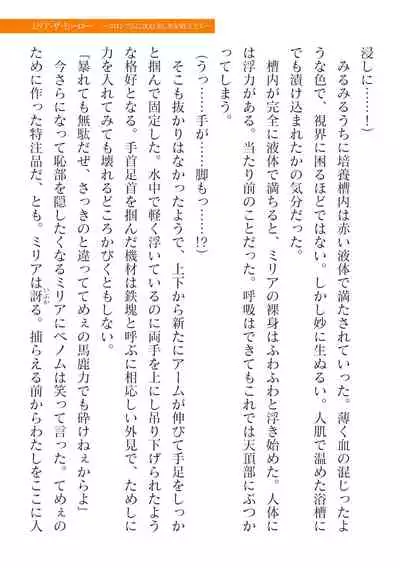 浸しに……！）
　みるみるうちに培養槽内は赤い液体で満たされていった。薄く血の混じったよ
うな色で、視界に困るほどではない。しかし妙に生ぬるい。人肌で温めた浴槽に
でも漬け込まれたかの気分だった。
　槽内が完全に液体で満ちると、ミリアの裸身はふわふわと浮き始めた。人体に
は浮力がある。当たり前のことだった。呼吸はできてもこれでは天頂部にぶつか
ってしまう。
（うっ……手が……脚もっ……!?）
　そこも抜かりはなかったようで、上下から新たにアームが伸びて手足をしっか
と掴んで固定した。水中で軽く浮いているのに両手を上にし吊り下げられたよう
な格好となる。手首足首を掴んだ機材は鉄塊と呼ぶに相応しい外見で、ためしに
力を入れてみても壊れるどころかびくともしない。
「暴れても無駄だぜ、さっきのと違っててめぇの馬鹿力でも砕けねぇからよ」
　今さらになって恥部を隠したくなるミリアにベノムは笑って言った。てめぇの
ために作った特注品だ、とも。ミリアは訝る。捕らえる前からわたしをここに入